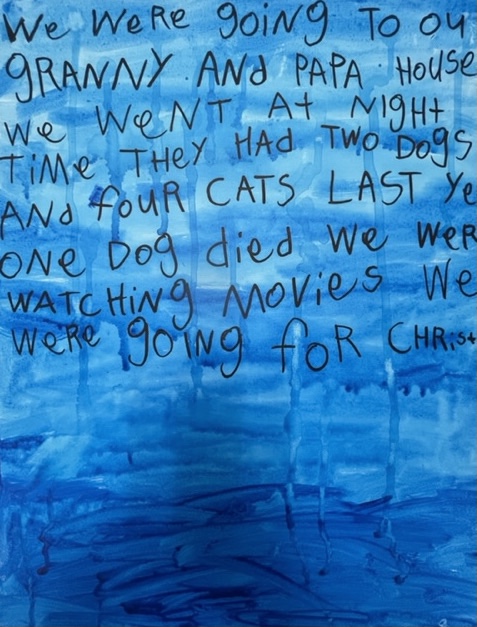 We WeRe going To ou
gRANNY AND PAPA House
we WeNT At NigHt
TiMe THeY HAd TWO Dogs
ANd fouR CATS LAST Ye
ONe DOg died We WeR
WATCHiNg MOVieS We
WeRe gOiNg foR CHRist